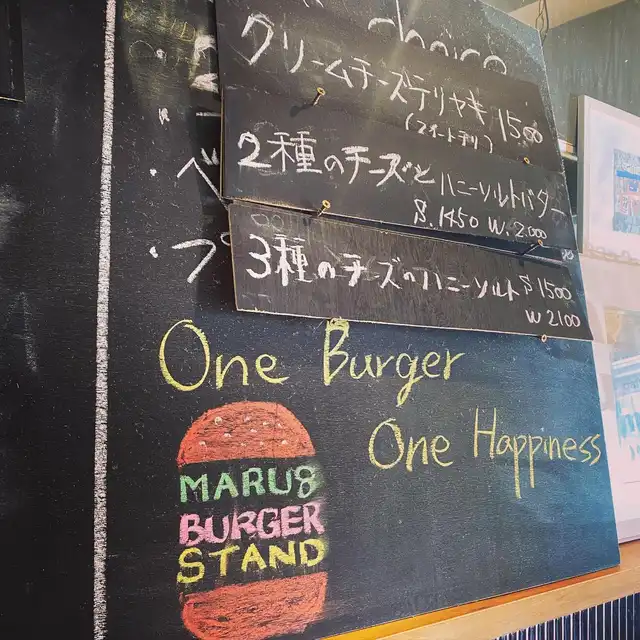 choice
クリームチーズテリヤキ 1500
2種のチーズとハニーソルトバター
S.1450 W.2000
3種のチーズのハニーソルト S1500
W2100
One Burger
One Happiness
MARU8
BURGER
STAND